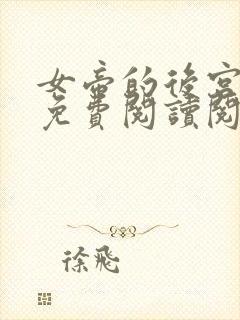 女帝的後宮
免費閱讀閱
徐飛